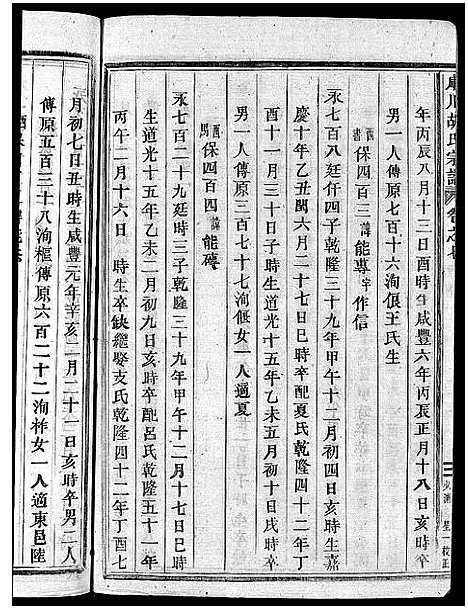 胡氏宗譜
年丙辰八月十三日酉時生咸豐六年丙辰正月十八日亥時卒
男一人傳原七百十七洵偃王氏生
保四百四三諱能專字作信
永七百十八廷仟四子乾隆三十九年甲午十二月初四日亥時生嘉
慶十年乙丑閏六月二十七日巳時卒配夏氏乾隆四十二年丁
酉十一月三十日子時生道光十五年乙未五月初十日戌時卒
男一人傳原三百七十七洵偃女一人適夏
保四百四四諱能磚
永七百二十九廷時三子乾隆三十九年甲午十二月十七日時
生道光十五年乙未二月初九日亥時卒配呂氏乾隆五十一年
丙午二月十六日 時生卒缺繼娶支氏乾隆四十二年丁酉七
月初七日丑時生咸豐元年辛亥二月二十一日亥時卒男二人
傳原五百三十八洵樞傳原六百二十二洵柞女一人適東邑陸